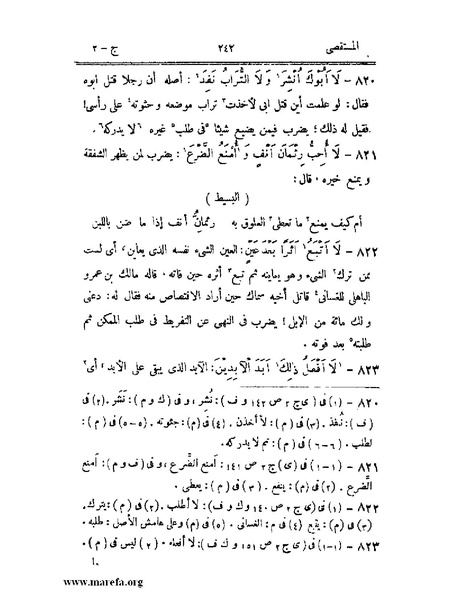 المستقصى ٢٤٢ ج - ٢
٨٢٠ - لَا أَبُوكَ أُنْشِرَ¹ وَلَا التُّرَابُ نَفِدَ²: أصله أن رجلا قتل ابوه
فقال: لو علمت أين قتل ابى لأخذت³ تراب موضعه وحثوته⁴ على رأسى!
فقيل له ذلك؛ يضرب فيمن يضيع شيئا ⁵فى طلب⁵ غيره ⁶لا يدركه⁶.
٨٢١ - لَا أُحِبُّ رِئْمَانَ أَنْفٍ وَ¹أُمْنَعُ الضَّرْعَ¹: يضرب لمن يظهر الشفقة
و يمنع خيره. قال:
( البسيط )
أم كيف يمنع² ما تعطى³ العلوق به رئمانُ أنف إذا ما ضن باللبن
٨٢٢ - لَا أَتْبَعُ¹ أَثَرًا بَعْدَ عَيْنٍ: العين الشىء نفسه الذى يعاين، أى لست
ممن ترك² الشىء وهو يعاينه ثم تبع³ أثره حين فاته. قاله مالك بن عمرو
الباهلى للغسانى⁴ قاتل أخيه سماك حين أراد الاقتصاص منه فقال له: دعنى
و لك مائة من الإبل! يضرب فى النهى عن التفريط فى طلب الممكن ثم
طلبته⁵ بعد فوته.
٨٢٣ - ¹لَا أَفْعَلُ ذٰلِكَ¹ أَبَدَ الْآبِدِيْنَ: الآبد الذى يبقى على الأبد، أى²
٨٢٠ - (١) فى (ى ج ٢ ص ١٤٢ و ف): نُشِر، و فى (ك و م): نَشَر. (٢) فى
(ف): نُفِدَ. (٣) فى (م): لأخذن. (٤) فى (م): جثوته. (٥-٥) فى (م):
لطلب. (٦-٦) فى (م): ثم لا يدركه.
٨٢١ - (١-١) فى (ى ج ٢ ص ١٤١): أمنع الضَّرع، و فى (ف و م): أَمنع
الضَّرع. (٢) فى (م): ينفع. (٣) فى (م): يعطى.
٨٢٢ - (١) فى (ى ج ٢ ص ١٤٠ و ك و ف): لا أطلب. (٢) فى (م): يترك.
(٣) فى (م): يتبع (٤) فى م: الغسانى. (٥) فى (م) وعلى هامش الأصل: طلبه.
٨٢٣ - (١-١) فى (ى ج ٢ ص ١٥١ و ك و ف): لا أفعله. (٢) ليس فى (م).
www.marefa.org